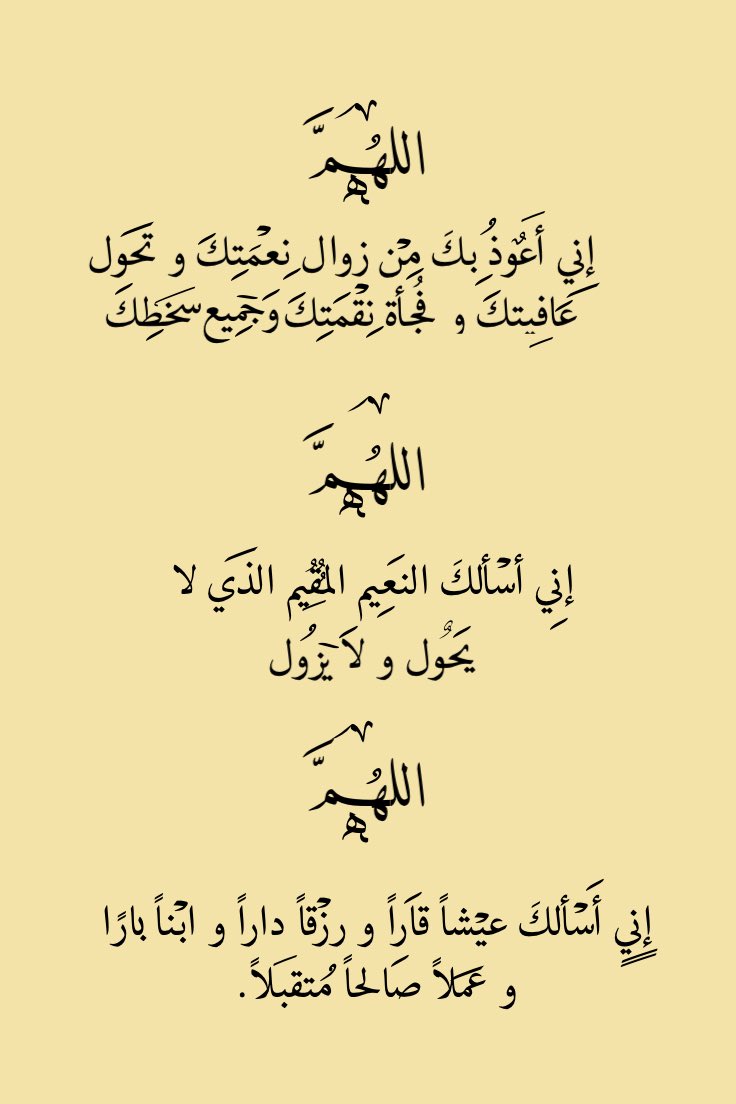 اللهُمَّ
إنِي أَعُوْذُ بكَ مِنْ زوال نِعْمَتِكَ و تَحَول
عَافِيتكَ و فُجأة نِقْمَتِكَ وَجَمِيع سَخَطِكَ
اللهُمَّ
إنِي أسْألكَ النعَِيم المُقِْيم الذَي لا
يَحُْول و لاَ يَزُول
اللهُمَّ
إنيٍ أَسْألكَ عيْشاً قاَراً و رزْقاً داراً و ابْناً بارًا
و عَمَلاً صَالحاً مُتقبَلاً.